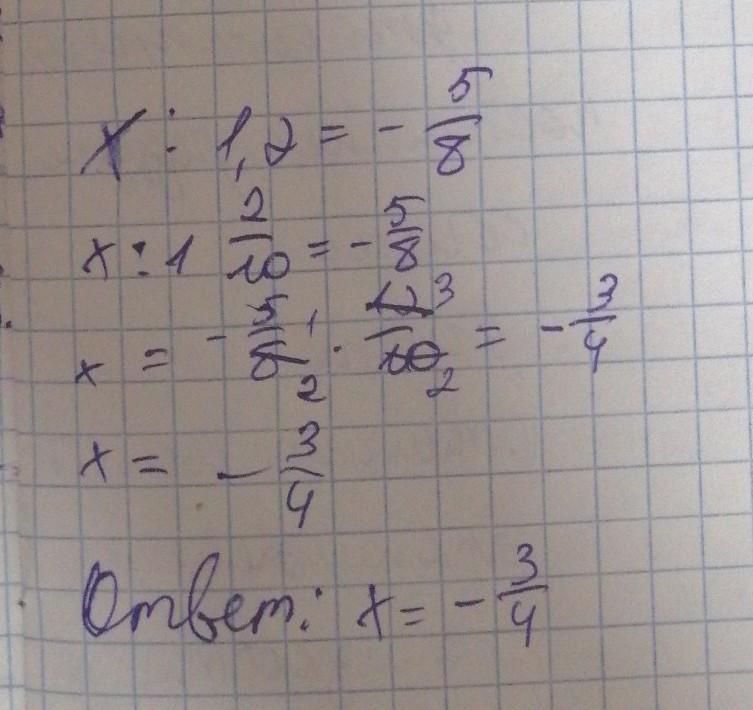 x : 1,2 = - 5/8
x : 1 2/10 = - 5/8
x = - 5/8 1 2 · 12/10 3 2 = - 3/4
x = - 3/4
Ответ: x = - 3/4